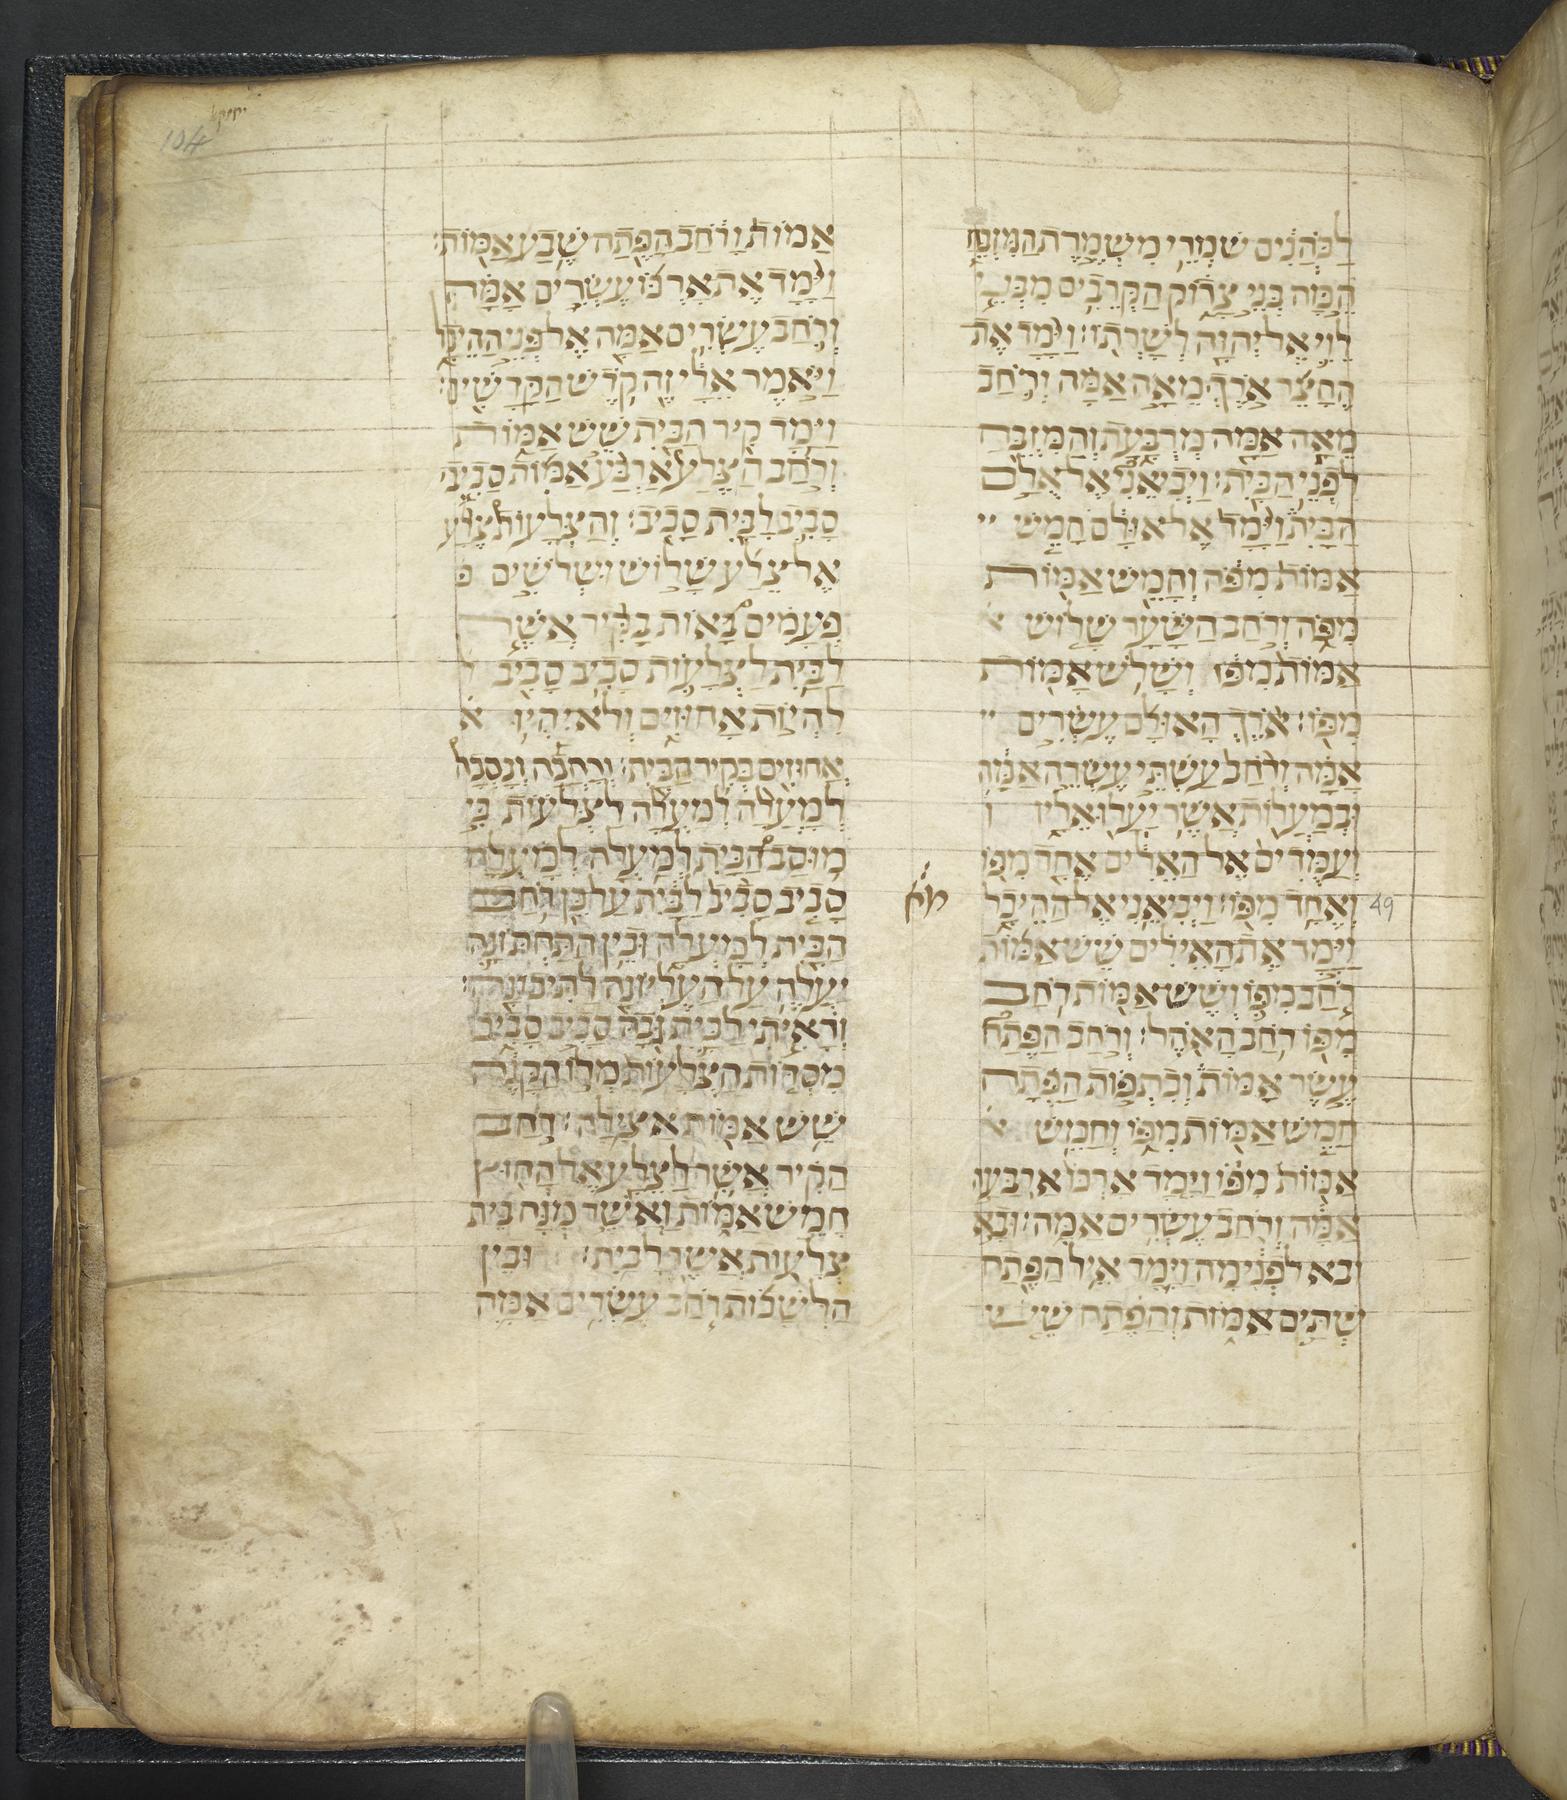 יחזקאל
104
לַכֹּהֲנִים שֹׁמְרֵי מִשְׁמֶרֶת הַמִּזְבֵּחַ
הֵמָּה בְנֵי צָדוֹק הַקְּרֵבִים מִבְּנֵי
לֵוִי אֶל יְהוָה לְשָׁרְתוֹ׃ וַיָּמָד אֶת
הֶחָצֵר אֹרֶךְ מֵאָה אַמָּה וְרֹחַב
מֵאָה אַמָּה מְרֻבַּעַת וְהַמִּזְבֵּחַ
לִפְנֵי הַבָּיִת׃ וַיְבִיאֵנִי אֶל אֻלָם
הַבַּיִת וַיָּמָד אֶל אוּלָם חָמֵשׁ
אַמּוֹת מִפֹּה וְחָמֵשׁ אַמּוֹת
מִפֹּה וְרֹחַב הַשַּׁעַר שָׁלוֹשׁ
אַמּוֹת מִפּוֹ וְשָׁלֹשׁ אַמּוֹת
מִפּוֹ׃ אֹרֶךְ הָאוּלָם עֶשְׂרִים
אַמָּה וְרֹחַב עַשְׁתֵּי עֶשְׂרֵה אַמָּה
וּבְמַעֲלוֹת אֲשֶׁר יַעֲלוּ אֵלָיו
וְעַמֻּדִים אֶל הָאֵלִים אֶחָד מִפּוֹ
וְאֶחָד מִפּוֹ׃ וַיְבִיאֵנִי אֶל הַהֵיכָל
מא
49
וַיָּמָד אֶת הָאֵילִים שֵׁשׁ אַמּוֹת
רֹחַב מִפּוֹ וְשֵׁשׁ אַמּוֹת רֹחַב
מִפּוֹ רֹחַב הָאֹהֶל׃ וְרֹחַב הַפֶּתַח
עֶשֶׂר אַמּוֹת וְכִתְפוֹת הַפֶּתַח
חָמֵשׁ אַמּוֹת מִפּוֹ וְחָמֵשׁ
אַמּוֹת מִפּוֹ וַיָּמָד אָרְכּוֹ אַרְבָּעִ
אַמָּה וְרֹחַב עֶשְׂרִים אַמָּה׃ וּבָא
ובא לִפְנִימָה וַיָּמָד אֵיל הַפֶּתַח
שְׁתַּיִם אַמּוֹת וְהַפֶּתַח שֵׁשׁ
אַמּוֹת וְרֹחַב הַפֶּתַח שֶׁבַע אַמּוֹת׃
וַיָּמָד אֶת אָרְכּוֹ עֶשְׂרִים אַמָּה
וְרֹחַב עֶשְׂרִים אַמָּה אֶל פְּנֵי הַהֵיכָל
וַיֹּאמֶר אֵלַי זֶה קֹדֶשׁ הַקֳּדָשִׁים׃
וַיָּמָד קִיר הַבַּיִת שֵׁשׁ אַמּוֹת
וְרֹחַב הַצֶּלַע אַרְבַּע אַמּוֹת סָבִיב
סָבִיב לַבַּיִת סָבִיב׃ וְהַצְּלָעוֹת צֵלָע
אֶל צֵלָע שָׁלוֹשׁ וּשְׁלֹשִׁים
פְּעָמִים בָּאוֹת בַּקִּיר אֲשֶׁר
לַבַּיִת לַצְּלָעוֹת סָבִיב סָבִיב
לִהְיוֹת אֲחוּזִים וְלֹא יִהְיוּ
אֲחוּזִים בְּקִיר הַבָּיִת׃ וְרָחֲבָה וְנָסְבָה
לְמַעְלָה לְמַעְלָה לַצְּלָעוֹת כִּי
מוּסַב הַבַּיִת לְמַעְלָה לְמַעְלָה
סָבִיב סָבִיב לַבַּיִת עַל כֵּן רֹחַב
הַבַּיִת לְמָעְלָה וּבֵין הַתַּחְתּוֹנָה
יַעֲלֶה עַל הָעֶלְיוֹנָה לַתִּיכוֹנָה׃
וְרָאִיתִי לַבַּיִת גֹּבַהּ סָבִיב סָבִיב
מוּסְדוֹת הַצְּלָעוֹת מְלוֹ הַקָּנֶה
שֵׁשׁ אַמּוֹת אַצִּילָה׃ רֹחַב
הַקִּיר אֲשֶׁר לַצֵּלָע אֶל הַחוּץ
חָמֵשׁ אַמּוֹת וַאֲשֶׁר מֻנָּח בֵּית
צְלָעוֹת אֲשֶׁר לַבָּיִת׃ וּבֵין
הַלְּשָׁכוֹת רֹחַב עֶשְׂרִים אַמָּה